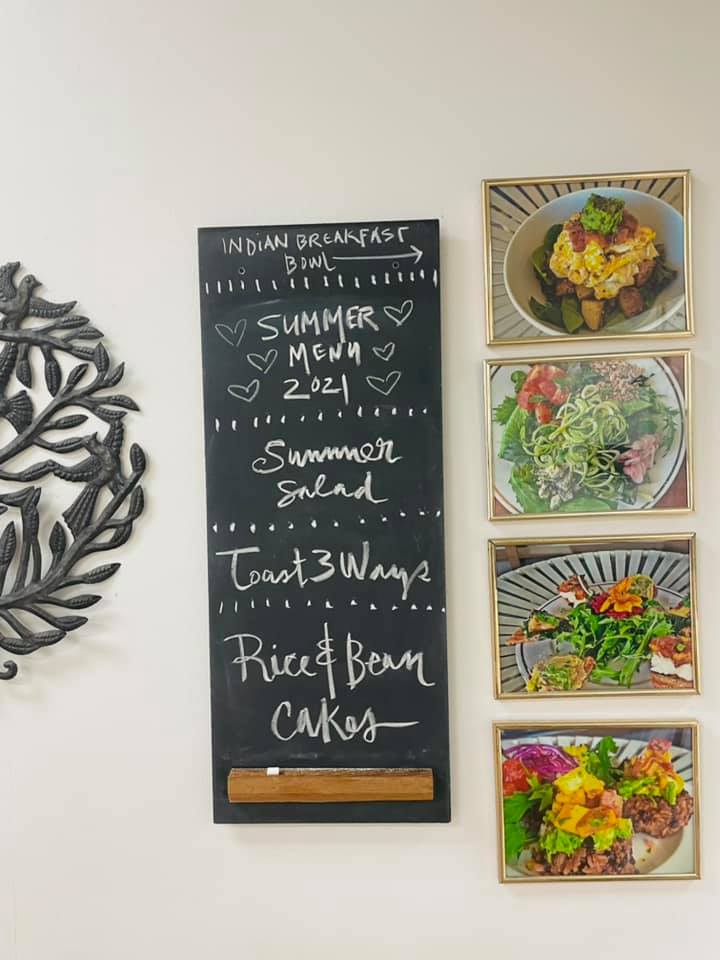 INDIAN BREAKFAST
BOWL
SUMMER
MENU
2021
Summer
Salad
Toast 3 Ways
Rice & Bean
Cakes